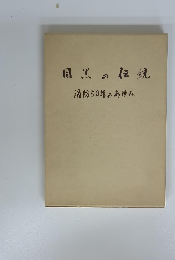 目黒の伝統
消防50年のあゆみ